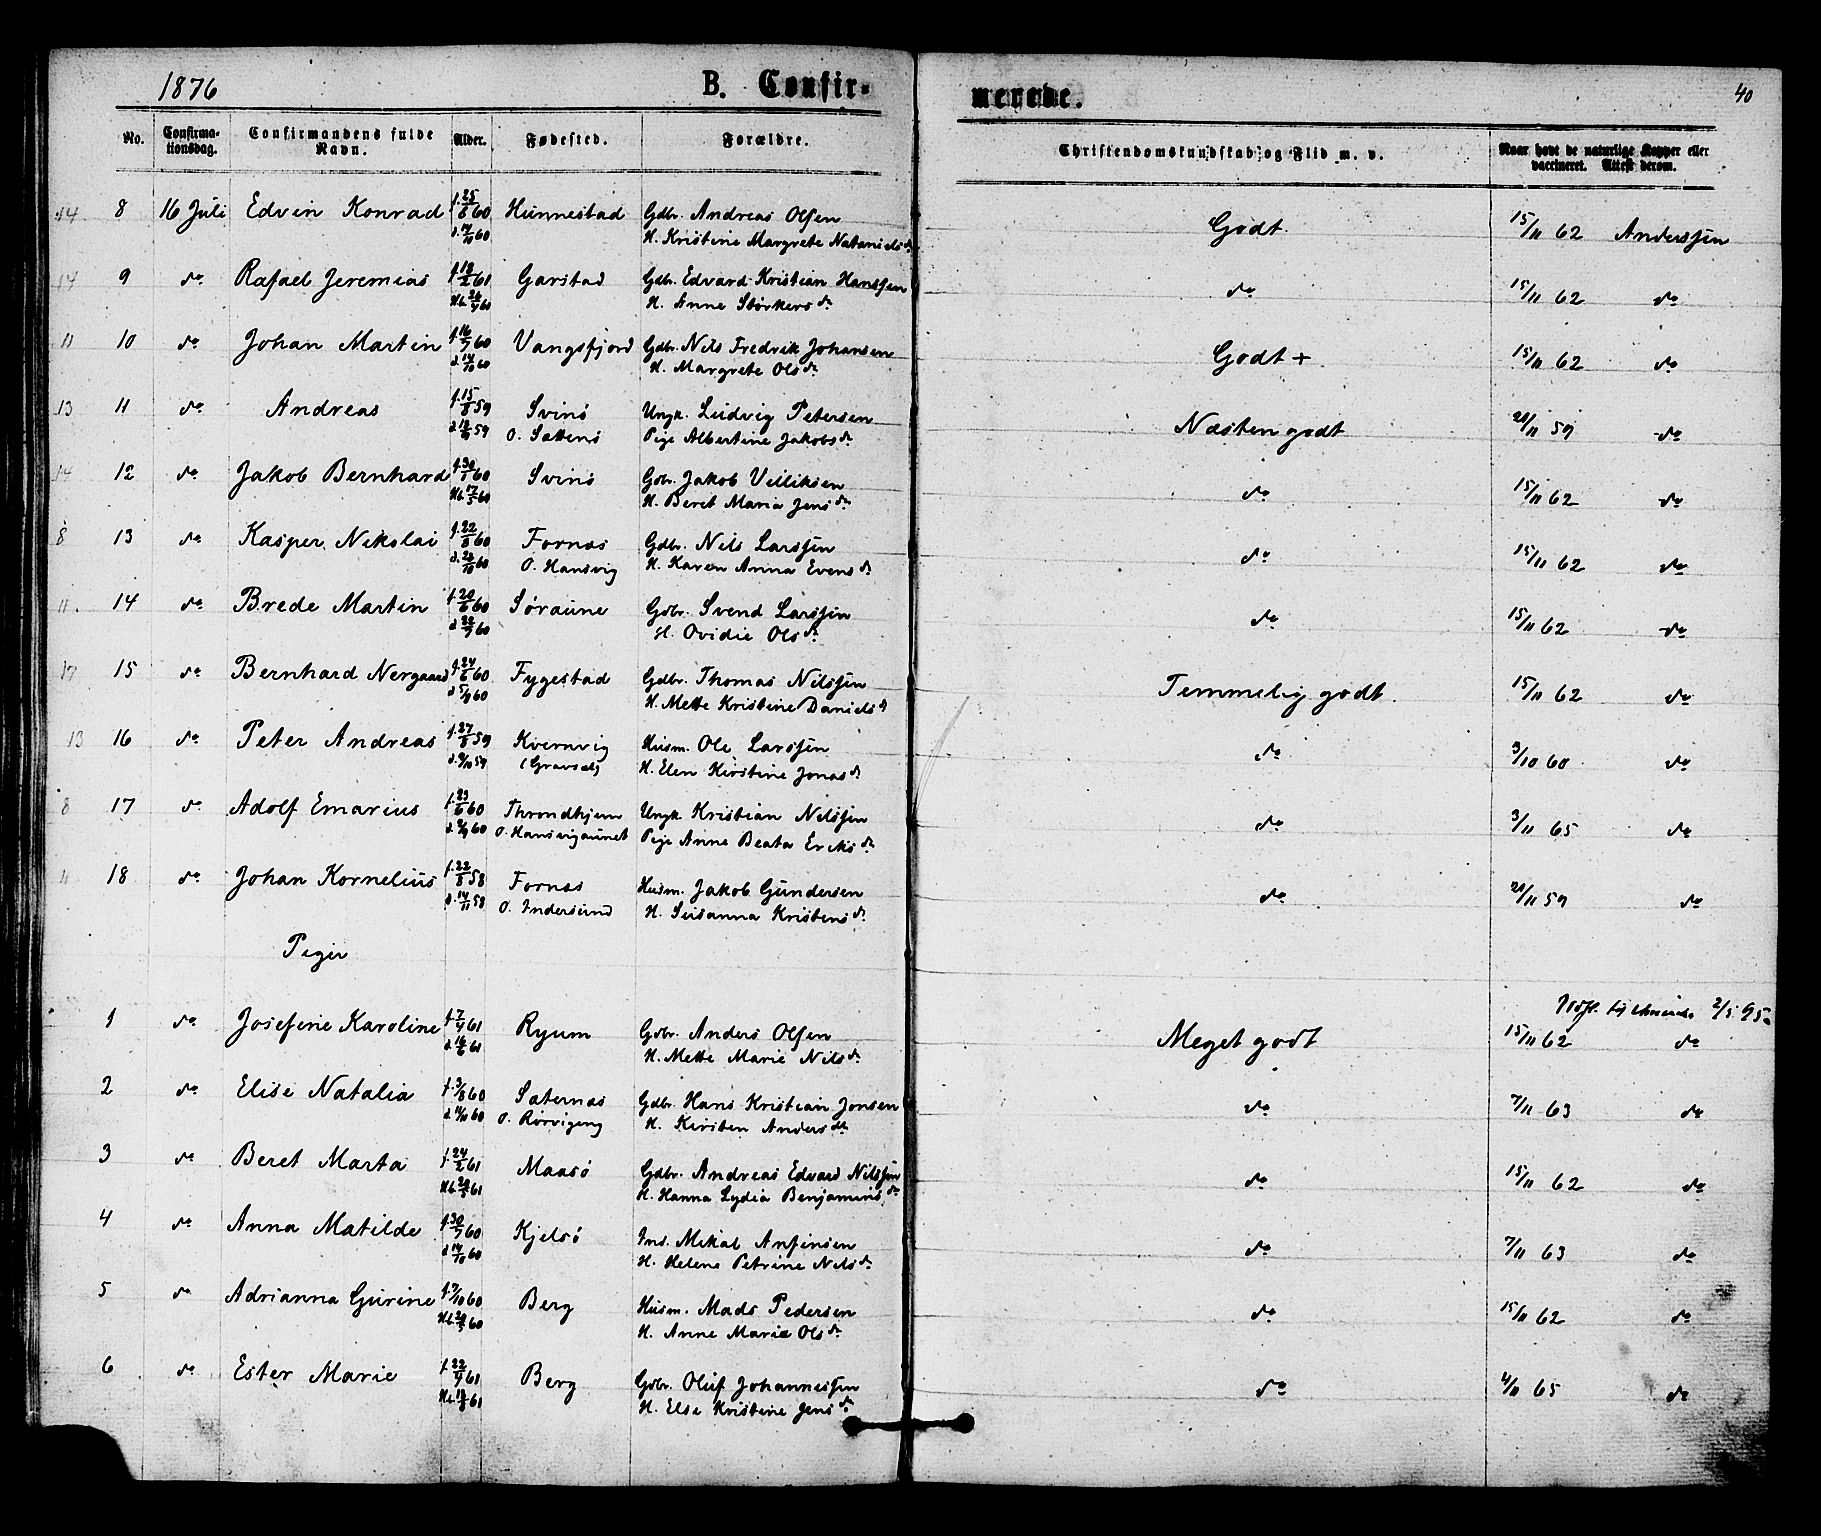 1876 B. Confir- merede. 40
No. Confirma-tionsdag. Confirmandens fulde Navn. Alder. Fødested. Forældre. Christendomskundskab og Flid m. v. Naar havt de naturlige Kopper eller vaccineret. Attest derom.
14. 8 16 Juli Edvin Konrad f. 25/8 60 Hunnestad Gdbr. Andreas Olsen Godt 15/11 62 Anderssen
d. 14/10 60 H. Kristine Margrete Nataniels dr
14 9 do Rafael Jeremias f. 18/2 61 Garstad Gdbr. Edvard Kristian Hanssen do 15/11 62 do
H. Anne Størkers dr
11 10 do Johan Martin f. 16/7 60 Vangsfjord Gdbr. Nils Fredrik Johansen Godt + 15/11 62 do
d. 14/10 60 H. Margrete Ols dr
13 11 do Andreas f. 15/8 59 Svinö Ungk. Ludvig Petersen Næsten godt 21/11 59 do
O. Sættenö Pige Albertine Jakobs dr
14 12 do Jakob Bernhard f. 30/1 60 Svinö Gdbr. Jakob Villiksen do 15/11 62 do
H. Beret Maria Jens dr
8 13 do Kasper Nikolai f. 22/8 60 Fornæs Gdbr. Nils Larssen do 15/11 62 do
O. Hansvig H. Karen Anna Evens dr
11. 14 do Brede Martin f. 20/6 60 Søraune Gdbr. Svend Larssen do 15/11 62 do
d. 22/7 60 H. Ovidie Ols dr
17 15 do Bernhard Nergaard f. 24/6 60 Fygestad Gdbr. Thomas Nilssen Temmelig godt. 15/11 62 do
d. 5/9 60 H. Mette Kristine Daniels dr
13 16 do Peter Andreas f. 27/8 59 Kvernvig Husm. Ole Larssen do 3/10 60 do
d. 9/10 59 (Gravsæt) H. Elen Kirstine Jonas dr
8 17 do Adolf Emarius f. 23/6 60 Throndhjem Ungk. Kristian Nilssen do 3/11 65 do
d. 9/9 60 O. Hansvigaunet Pige Anne Beata Eriks dr
11 18 do Johan Kornelius f. 22/8 58 Fornæs Husm. Jakob Gundersen do 21/11 59 do
d. 14/11 58 O. Indersund H. Susanna Kristens dr
Piger
2/5 95.
1 do Josefine Karoline f. 7/4 61 Ryum Gdbr. Anders Olsen Meget godt 15/11 62 do
d. 16/6 61 H. Mette Marie Nils dr
2 do Elise Natalia f. 3/8 60 Sæternæs Gdbr. Hans Kristian Jonsen do 7/11 63 do
O. Rørvigeng H. Kirsten Anders dtr
3 do Beret Marta f. 24/2 61 Maasö Gdbr. Andreas Edvard Nilssen do 15/11 62 do
H. Hanna Lydia Benjamins dr
4 do Anna Matilde f. 30/7 60 Kjelsö Ins. Mikal Anfinsen do 7/11 63 do
d. 14/10 60 H. Helene Petrine Nils dr
5 do Adrianna Gurine Berg Husm. Mads Pedersen do 15/11 62 do
H. Anne Marie Ols dr
6 do Ester Marie Berg Gdbr. Oluf Johannessen do 4/11 65 do
H. Else Kristine Jens dr.